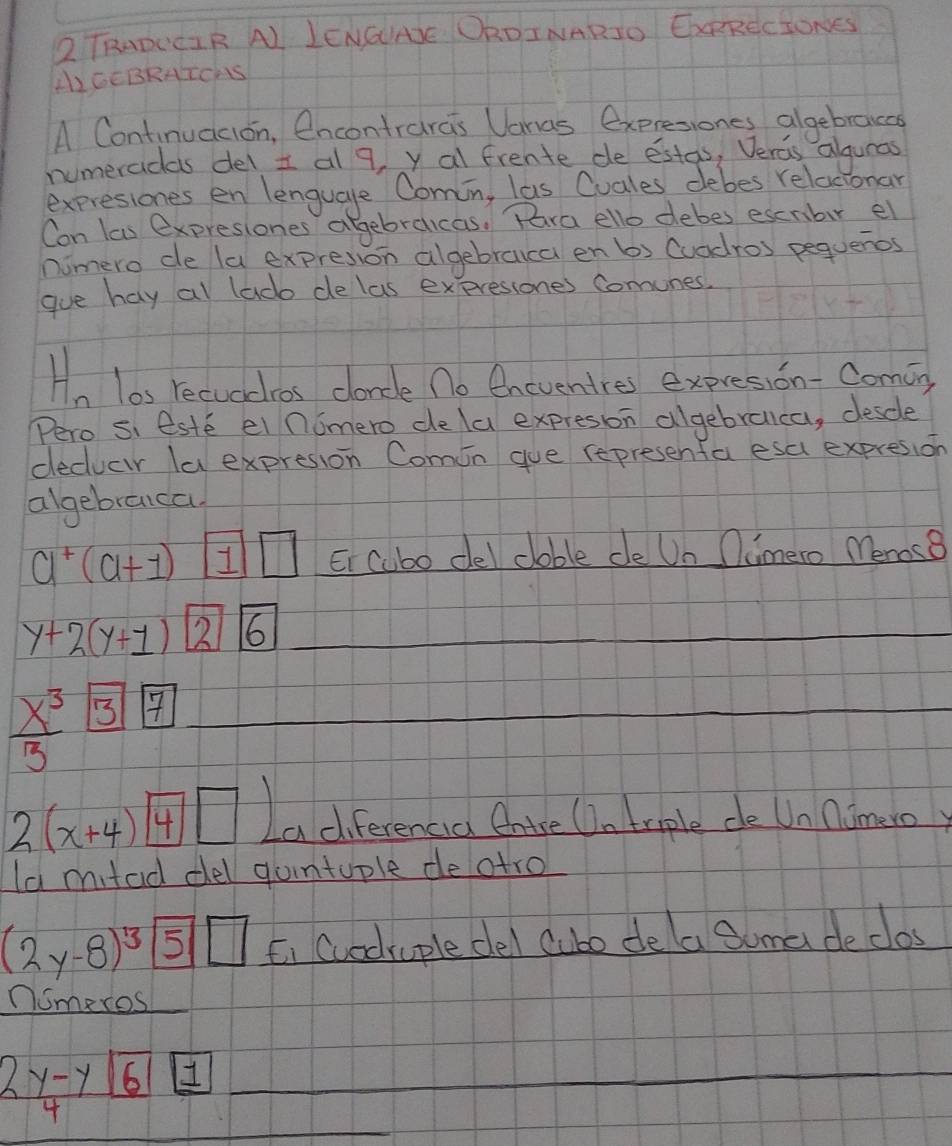 2 TRADUCIR Al LENGUAJE ORDINARIO EXPRECIONES
AlGEBRAICAS
A Continuación, encontrarás Varias expresiones algebraicas
numeradas del 1 al 9, y al frente de éstas, Verás algunas
expresiones en lenguaje Común, las Cuales debes relacionar
Con las expresiones algebraicas. Para ello debes escribir el
número de la expresión algebraica en los Cuadros pequeños
que hay al lado de las expresiones Comunes.
En los recuadros donde No encuentres expresión- Común,
Pero si esté el número de la expresión algebraica, desde
deducir la expresión Común que representa esa expresión
algebraica.
a+(a+1) 1 El Cubo del doble de Un Número Menos 8
y+2(y+1) 2 6
x³/3 3 7
2(x+4) 4 La diferencia Entre Un triple de Un Número y
la mitad del quintuple de otro
(2y-8)³ 5 El Cuadruple del Cubo de la Suma de dos
números
2y-y/4 6 1